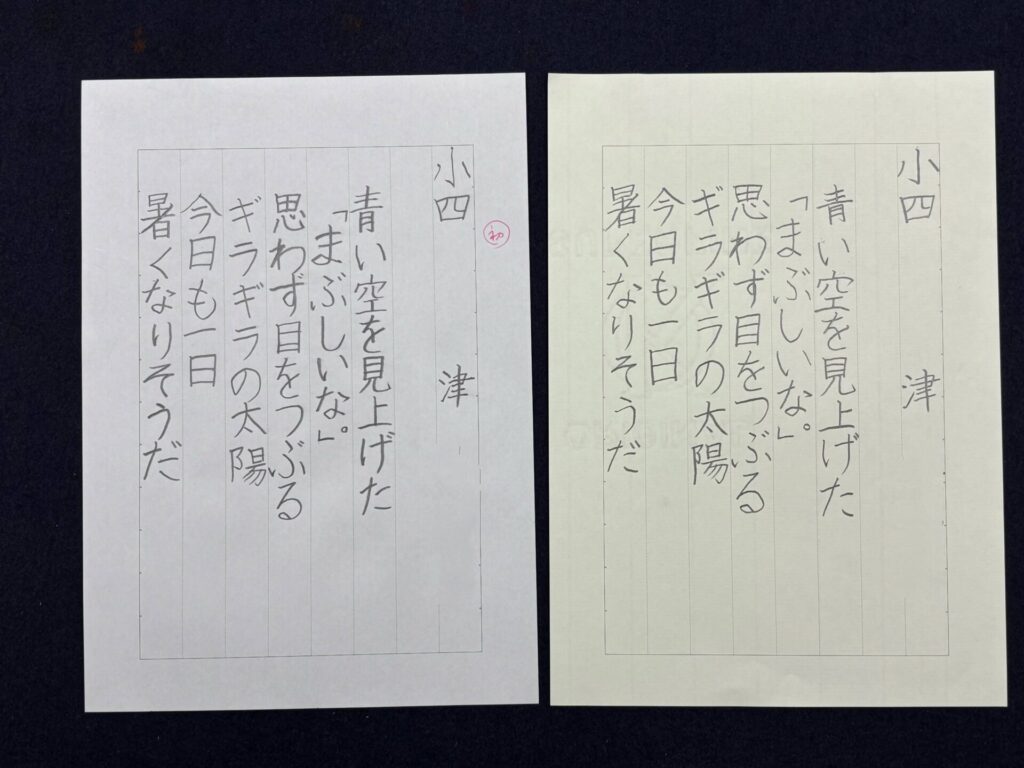 小四 津
青い空を見上げた
「まぶしいな。」
思わず目をつぶる
ギラギラの太陽
今日も一日
暑くなりそうだ
初
小四 津
青い空を見上げた
「まぶしいな。」
思わず目をつぶる
ギラギラの太陽
今日も一日
暑くなりそうだ